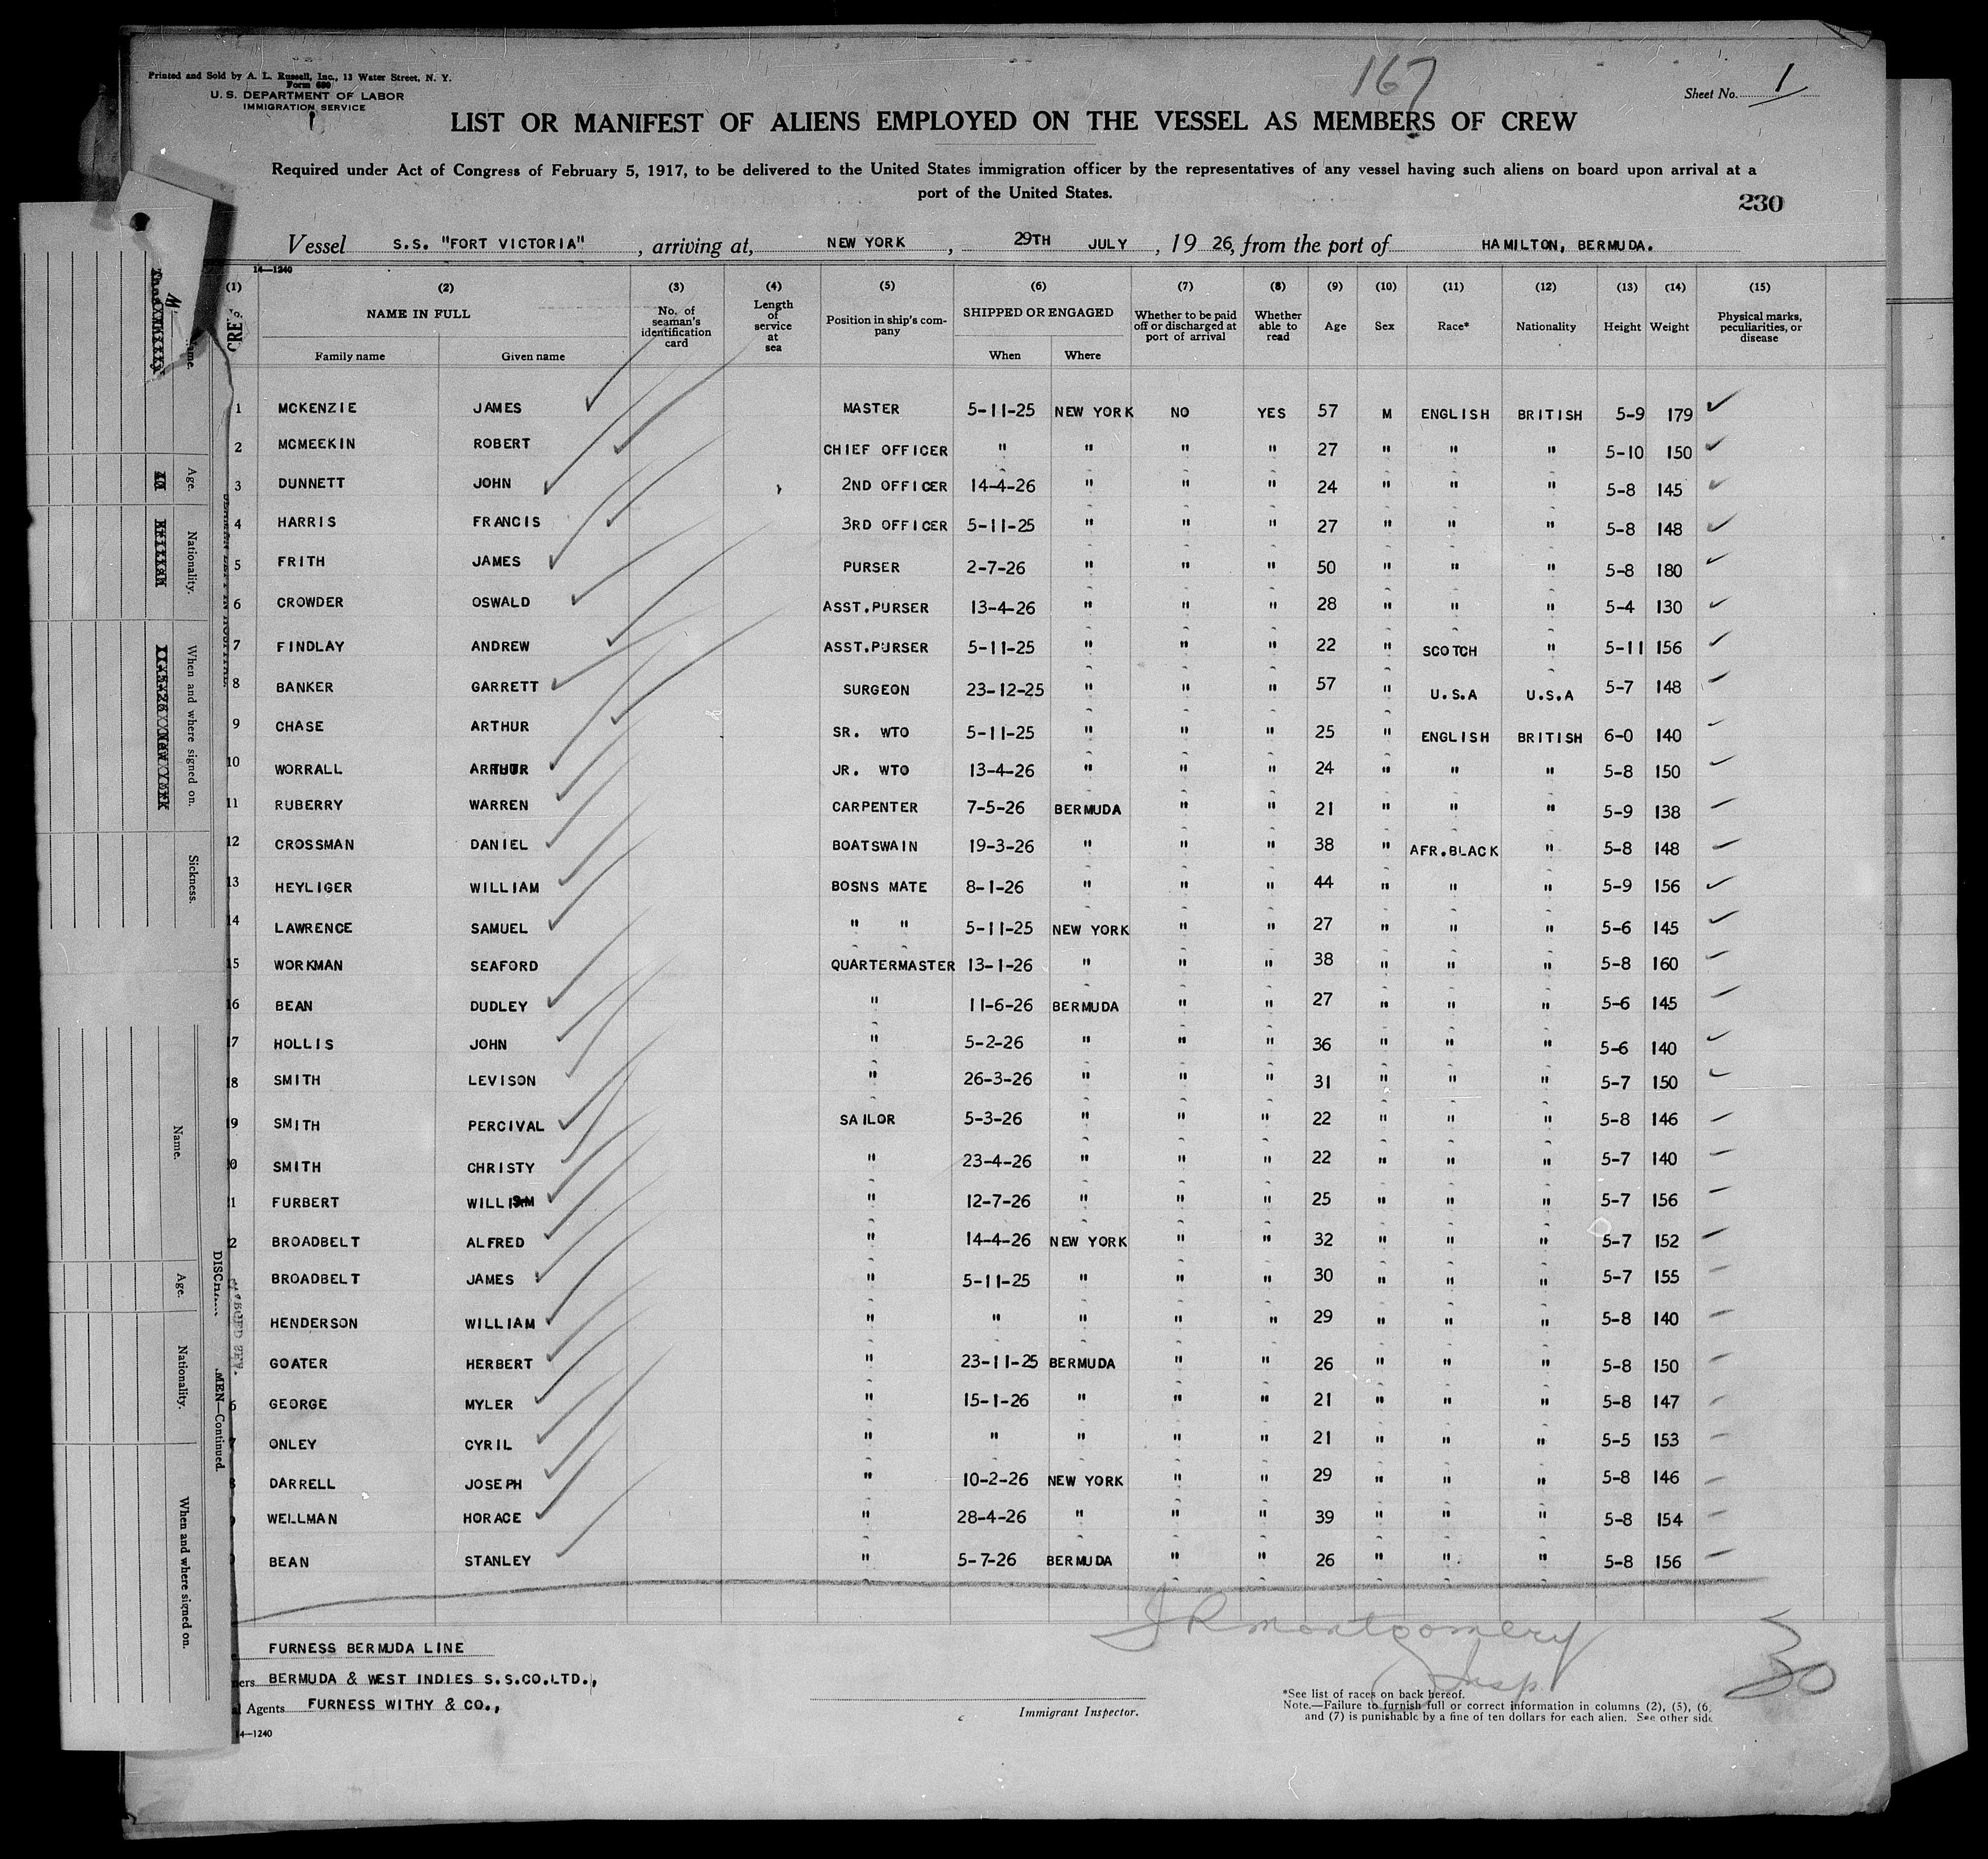 Printed and Sold by A. L. Russell, Inc., 13 Water Street, N. Y.
Form 680
U. S. DEPARTMENT OF LABOR
IMMIGRATION SERVICE
167
Sheet No. 1
LIST OR MANIFEST OF ALIENS EMPLOYED ON THE VESSEL AS MEMBERS OF CREW
Required under Act of Congress of February 5, 1917, to be delivered to the United States immigration officer by the representatives of any vessel having such aliens on board upon arrival at a
port of the United States.
230
Vessel S.S. "FORT VICTORIA", arriving at, NEW YORK, 29TH JULY, 1926, from the port of HAMILTON, BERMUDA.
14—1240
(1) (2) (3) (4) (5) (6) (7) (8) (9) (10) (11) (12) (13) (14) (15)
NAME IN FULL No. of seaman's identification card Length of service at sea Position in ship's company SHIPPED OR ENGAGED Whether to be paid off or discharged at port of arrival Whether able to read Age Sex Race* Nationality Height Weight Physical marks, peculiarities, or disease
Family name Given name When Where
1 MCKENZIE JAMES MASTER 5-11-25 NEW YORK NO YES 57 M ENGLISH BRITISH 5-9 179
2 MCMEEKIN ROBERT CHIEF OFFICER " " " " 27 " " " 5-10 150
3 DUNNETT JOHN 2ND OFFICER 14-4-26 " " " 24 " " " 5-8 145
4 HARRIS FRANCIS 3RD OFFICER 5-11-25 " " " 27 " " " 5-8 148
5 FRITH JAMES PURSER 2-7-26 " " " 50 " " " 5-8 180
6 CROWDER OSWALD ASST.PURSER 13-4-26 " " " 28 " " " 5-4 130
7 FINDLAY ANDREW ASST.PURSER 5-11-25 " " " 22 " SCOTCH " 5-11 156
8 BANKER GARRETT SURGEON 23-12-25 " " " 57 " U.S.A U.S.A 5-7 148
9 CHASE ARTHUR SR. WTO 5-11-25 " " " 25 " ENGLISH BRITISH 6-0 140
10 WORRALL ARTHUR JR. WTO 13-4-26 " " " 24 " " " 5-8 150
11 RUBERRY WARREN CARPENTER 7-5-26 BERMUDA " " 21 " " " 5-9 138
12 CROSSMAN DANIEL BOATSWAIN 19-3-26 " " " 38 " AFR.BLACK " 5-8 148
13 HEYLIGER WILLIAM BOSNS MATE 8-1-26 " " " 44 " " " 5-9 156
14 LAWRENCE SAMUEL " " 5-11-25 NEW YORK " " 27 " " " 5-6 145
15 WORKMAN SEAFORD QUARTERMASTER 13-1-26 " " " 38 " " " 5-8 160
16 BEAN DUDLEY " 11-6-26 BERMUDA " " 27 " " " 5-6 145
17 HOLLIS JOHN " 5-2-26 " " " 36 " " " 5-6 140
18 SMITH LEVISON " 26-3-26 " " " 31 " " " 5-7 150
9 SMITH PERCIVAL SAILOR 5-3-26 " " " 22 " " " 5-8 146
0 SMITH CHRISTY " 23-4-26 " " " 22 " " " 5-7 140
1 FURBERT WILLIAM " 12-7-26 " " " 25 " " " 5-7 156
2 BROADBELT ALFRED " 14-4-26 NEW YORK " " 32 " " " 5-7 152
BROADBELT JAMES " 5-11-25 " " " 30 " " " 5-7 155
HENDERSON WILLIAM " " " " " 29 " " " 5-8 140
GOATER HERBERT " 23-11-25 BERMUDA " " 26 " " " 5-8 150
6 GEORGE MYLER " 15-1-26 " " " 21 " " " 5-8 147
7 ONLEY CYRIL " " " " " 21 " " " 5-5 153
8 DARRELL JOSEPH " 10-2-26 NEW YORK " " 29 " " " 5-8 146
WELLMAN HORACE " 28-4-26 " " " 39 " " " 5-8 154
BEAN STANLEY " 5-7-26 BERMUDA " " 26 " " " 5-8 156
J R Montgomery
Insp
30
FURNESS BERMUDA LINE
ners BERMUDA & WEST INDIES S.S.CO.LTD.,
l Agents FURNESS WITHY & CO.,
14—1240
Immigrant Inspector.
*See list of races on back hereof.
Note.—Failure to furnish full or correct information in columns (2), (5), (6,
and (7) is punishable by a fine of ten dollars for each alien. See other side
Age. Nationality. When and where signed on. Sickness.
Name. Age. Nationality. When and where signed on.
MEN—Continued.